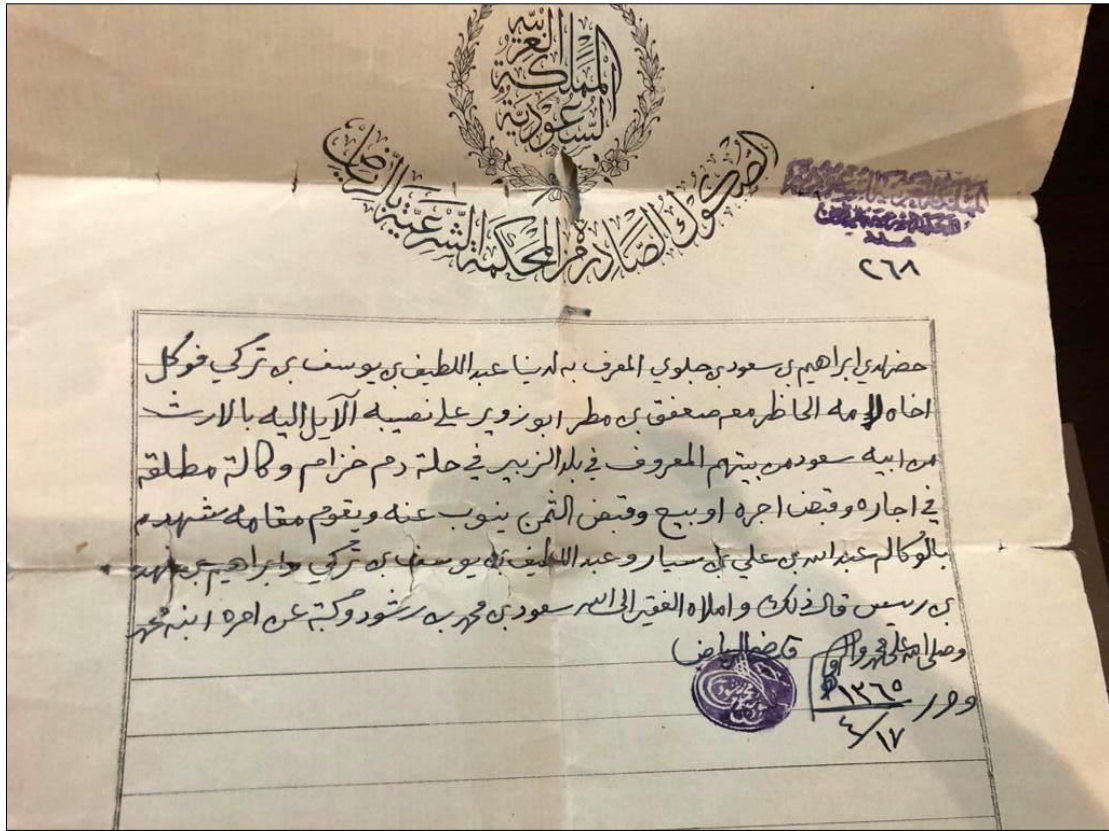 المملكة العربية السعودية
الصكوك الصادرة من المحكمة الشرعية بالرياض
عدد
٢٦٨
حضر لدي ابراهيم بن سعود بن جلوي المعرف به لدينا عبد اللطيف بن يوسف بن تركي فوكل
اخاه لامه الحاظر معه صعفق بن مطر ابو زوير على نصيبه الآيل اليه بالارث
من ابيه سعود من بيتهم المعروف في بلد الزبير في حلة دم خزام وكالة مطلقه
في اجاره وقبض اجره او بيع وقبض الثمن ينوب عنه ويقوم مقامه شهد
بالوكاله عبد الله بن علي بن سيار وعبد اللطيف بن يوسف بن تركي وابراهيم بن فهد
بن ريس قال ذلك واملاه الفقير الى الله سعود بن محمد بن رشود وكتبه عن امره ابنه محمد
وصلى الله على محمد واله
قاضي الرياض
وحرر ١٣٦٥
٤/١٧